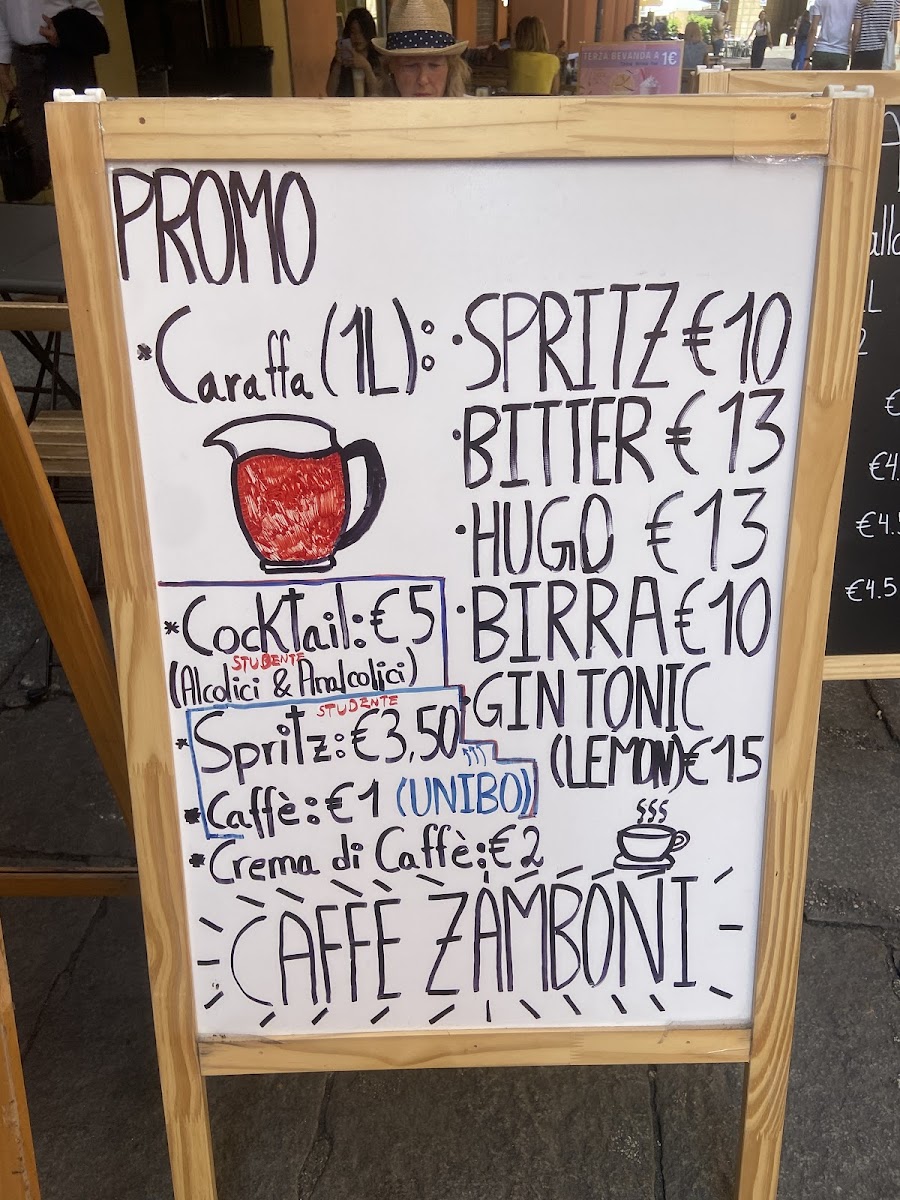 TERZA BEVANDA A 1€
PROMO
*Caraffa (1L): ·SPRITZ €10
·BITTER €13
·HUGO €13
·BIRRA €10
·GIN TONIC
(LEMON) €15
*Cocktail: €5
STUDENTE
(Alcolici & Analcolici)
STUDENTE
*Spritz: €3,50
*Caffè: €1 (UNIBO)
*Crema di Caffè: €2
CAFFÈ ZAMBONI
€4.5
€4.5